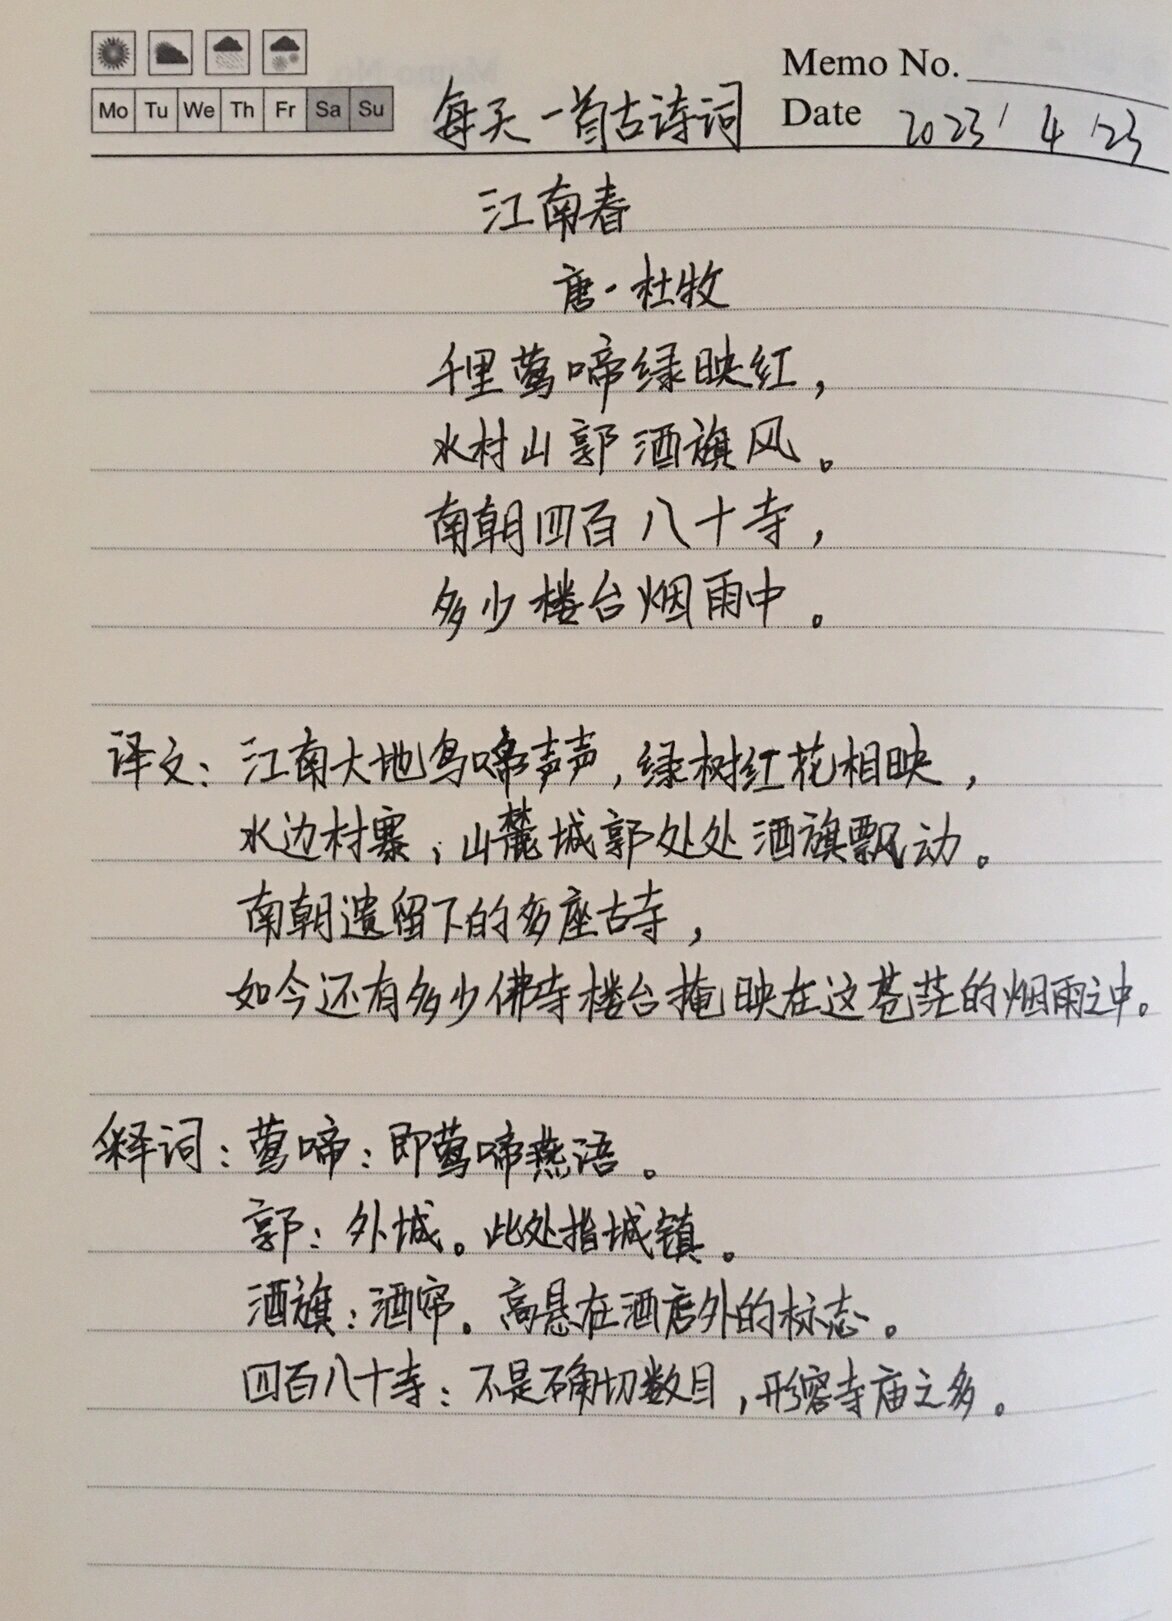 Memo No.
Mo Tu We Th Fr Sa Su
每天一首古诗词
Date 2023/4/23
江南春
唐·杜牧
千里莺啼绿映红，
水村山郭酒旗风。
南朝四百八十寺，
多少楼台烟雨中。
译文：江南大地鸟啼声声，绿树红花相映，
水边村寨，山麓城郭处处酒旗飘动。
南朝遗留下的多座古寺，
如今还有多少佛寺楼台掩映在这苍茫的烟雨之中。
释词：莺啼：即莺啼燕语。
郭：外城。此处指城镇。
酒旗：酒帘。高悬在酒店外的标志。
四百八十寺：不是确切数目，形容寺庙之多。